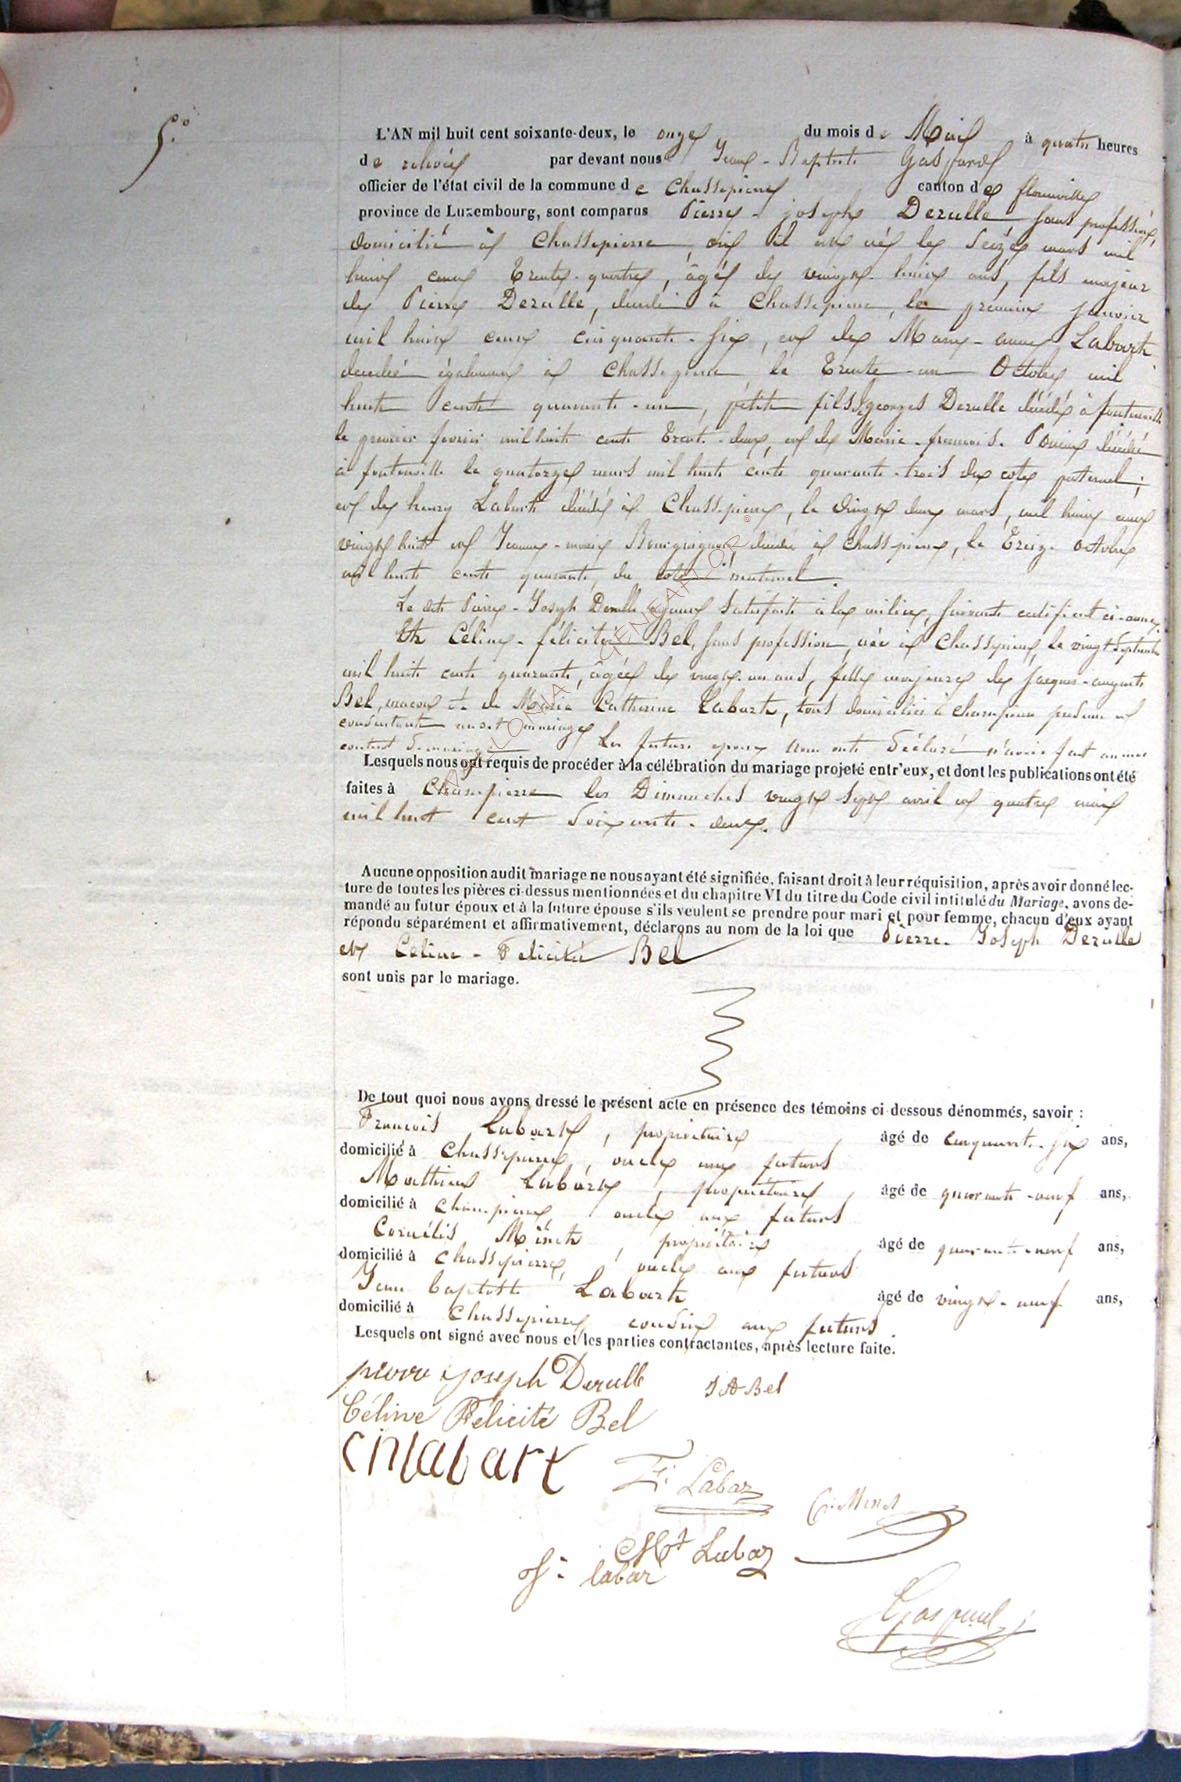 5.°
L'AN mil huit cent soixante-deux, le onze du mois de Mai à quatre heures
de relevée par devant nous Jean-Baptiste Gaspard
officier de l'état civil de la commune de Chassepierre canton de florenville
province de Luxembourg, sont comparus Pierre-joseph Derulle sans profession,
domicilié à Chassepierre, où il est né le seize mars mil
huit cent trente-quatre, âgé de vingt-huit ans, fils majeur
de Pierre Derulle, décédé à Chassepierre, le premier janvier
mil huit cent cinquante-six, et de Marie-anne Labart
décédée également à Chassepierre le trente-un Octobre mil
huit cent quarante-un, petit fils georges Derulle décédé à fontenoille
le premier fevrier mil huit cent trente-deux, et de Marie-francois. décédée
à fontenoille le quatorze mars mil huit cent quarante-trois du coté paternel;
et de henry Labart décédé à Chassepierre, le vingt deux mars, mil huit cent
vingt huit et Jeanne-marie Bourguignon, décédée à chassepierre, le treize Octobre
mil huit cent quarante, du coté maternel.
Le dit Pierre-Joseph Derulle ayant satisfait à la milice, suivant certificat ci-annexé.
Et Céline-félicité Bel, sans profession, née à Chassepierre, le vingt Septembre
mil huit cent quarante, âgée de vingt-un ans, fille majeure de Jacques-auguste
Bel, maçon et de Marie Catherine Labart, tous domiciliés à chassepierre présents et
consentants au dit mariage. Les futurs époux nous ont déclaré n'avoir fait aucun
contrat de mariage
Lesquels nous ont requis de procéder à la célébration du mariage projeté entr'eux, et dont les publications ont été
faites à Chassepierre les Dimanches vingt sept avril et quatre mai
mil huit cent soixante-deux.
Aucune opposition audit mariage ne nous ayant été signifiée, faisant droit à leur réquisition, après avoir donné lec-
ture de toutes les pièces ci-dessus mentionnées et du chapitre VI du titre du Code civil intitulé du Mariage, avons de-
mandé au futur époux et à la future épouse s'ils veulent se prendre pour mari et pour femme, chacun d'eux ayant
répondu séparément et affirmativement, déclarons au nom de la loi que Pierre-Joseph Derulle
et Céline-Félicité Bel
sont unis par le mariage.
De tout quoi nous avons dressé le présent acte en présence des témoins ci-dessous dénommés, savoir :
François Labart, propriétaire âgé de cinquante-six ans,
domicilié à Chassepierre, oncle aux futurs
Mathieu Labart, propriétaire, âgé de quarante-neuf ans,
domicilié à Chassepierre oncle aux futurs
Cornélis Minet, propriétaire âgé de quarante-neuf ans,
domicilié à Chassepierre, oncle aux futurs
Jean baptiste Labart âgé de vingt-neuf ans,
domicilié à Chassepierre cousin aux futurs.
Lesquels ont signé avec nous et les parties contractantes, après lecture faite.
pierre joseph Derulle J A Bel
Céline Félicité Bel
C M labart
F. Labar C. Minet
Mt Labar
J. labar
Gaspard